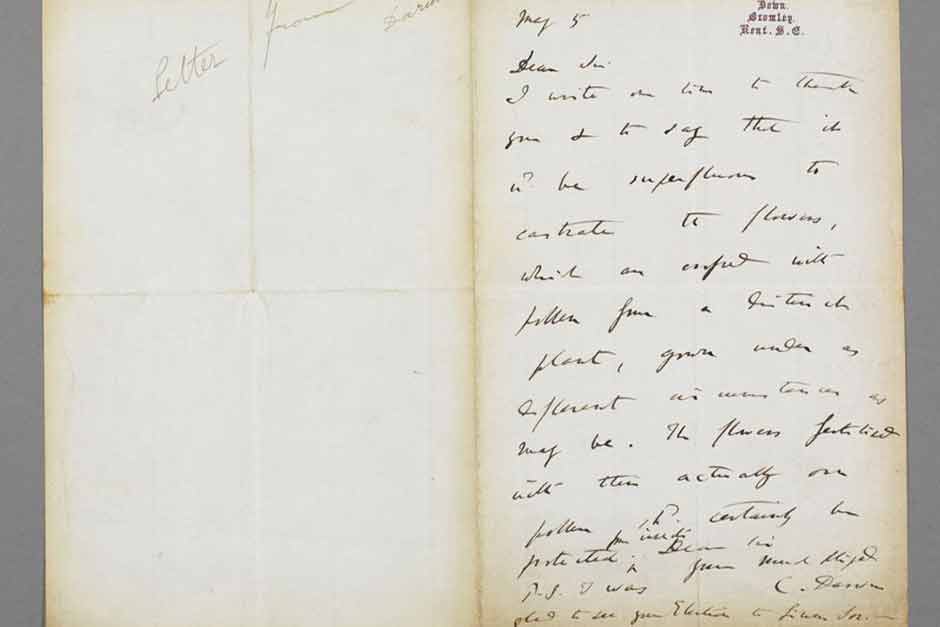 Letter from Darwin
Down.
Bromley.
Kent. S.E.
May 5
Dear Sir
I write one line to thank
you & to say that it
wd. be superfluous to
castrate the flowers,
which are crossed with
pollen from a distinct
plant, grown under as
different circumstances as
may be. The flowers fertilised
with their actually own
pollen shd. certainly be
protected from insects. Dear Sir
yours much obliged
C. Darwin
P.S. I was
glad to see your Election to Linean Soc.